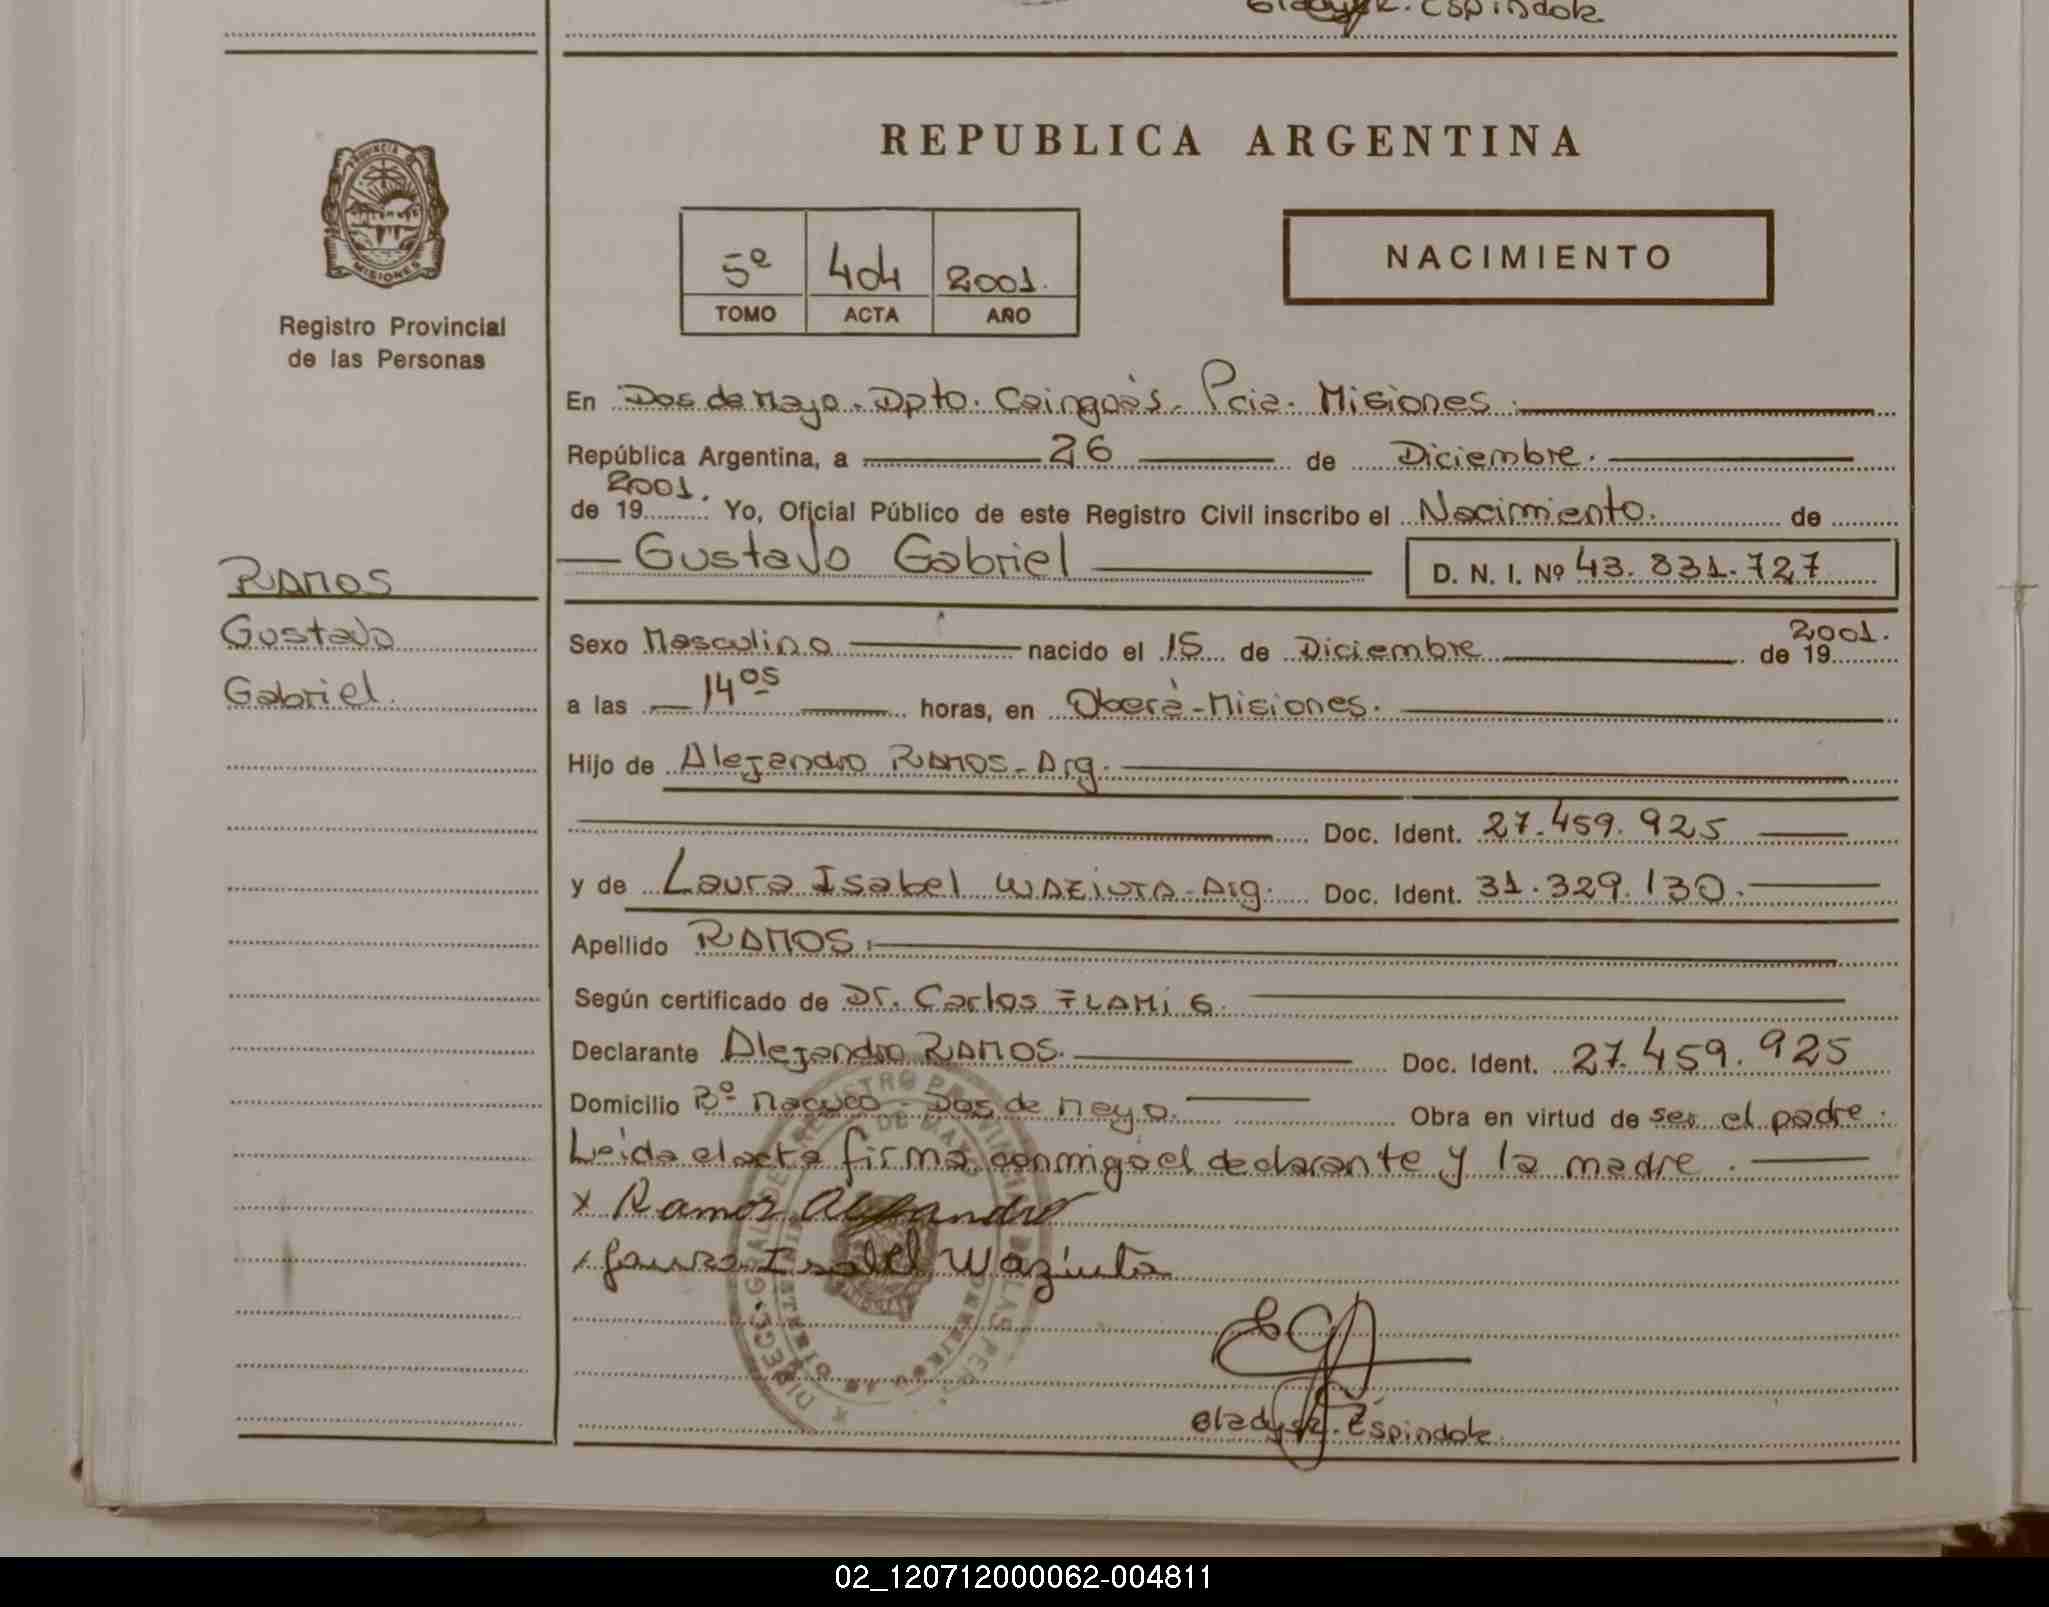 Gladys R. Espindola
PROVINCIA DE
MISIONES
Registro Provincial
de las Personas
RAMOS
Gustavo
Gabriel.
REPUBLICA ARGENTINA
5º 404 2001.
TOMO ACTA AÑO
NACIMIENTO
En Dos de Mayo. Dpto. Cainguás. Pcia. Misiones.
República Argentina, a 26 de Diciembre.
2001.
de 19 Yo, Oficial Público de este Registro Civil inscribo el Nacimiento. de
Gustavo Gabriel D. N. I. Nº 43.831.727
2001.
Sexo Masculino nacido el 15 de Diciembre de 19
a las 14 05 horas, en Oberá-Misiones.
Hijo de Alejandro RAMOS-Arg.
Doc. Ident. 27.459.925
y de Laura Isabel WAZIUTA-Arg. Doc. Ident. 31.329.130.
Apellido RAMOS.
Según certificado de Dr. Carlos
Declarante Alejandro RAMOS. Doc. Ident. 27.459.925
Domicilio Bº Dos de Mayo. Obra en virtud de ser el padre.
Leída el acta firma conmigo el declarante y la madre.
x Ramos Alejandro
x Laura Isabel Waziuta
Gladys R. Espindola
02_120712000062-004811